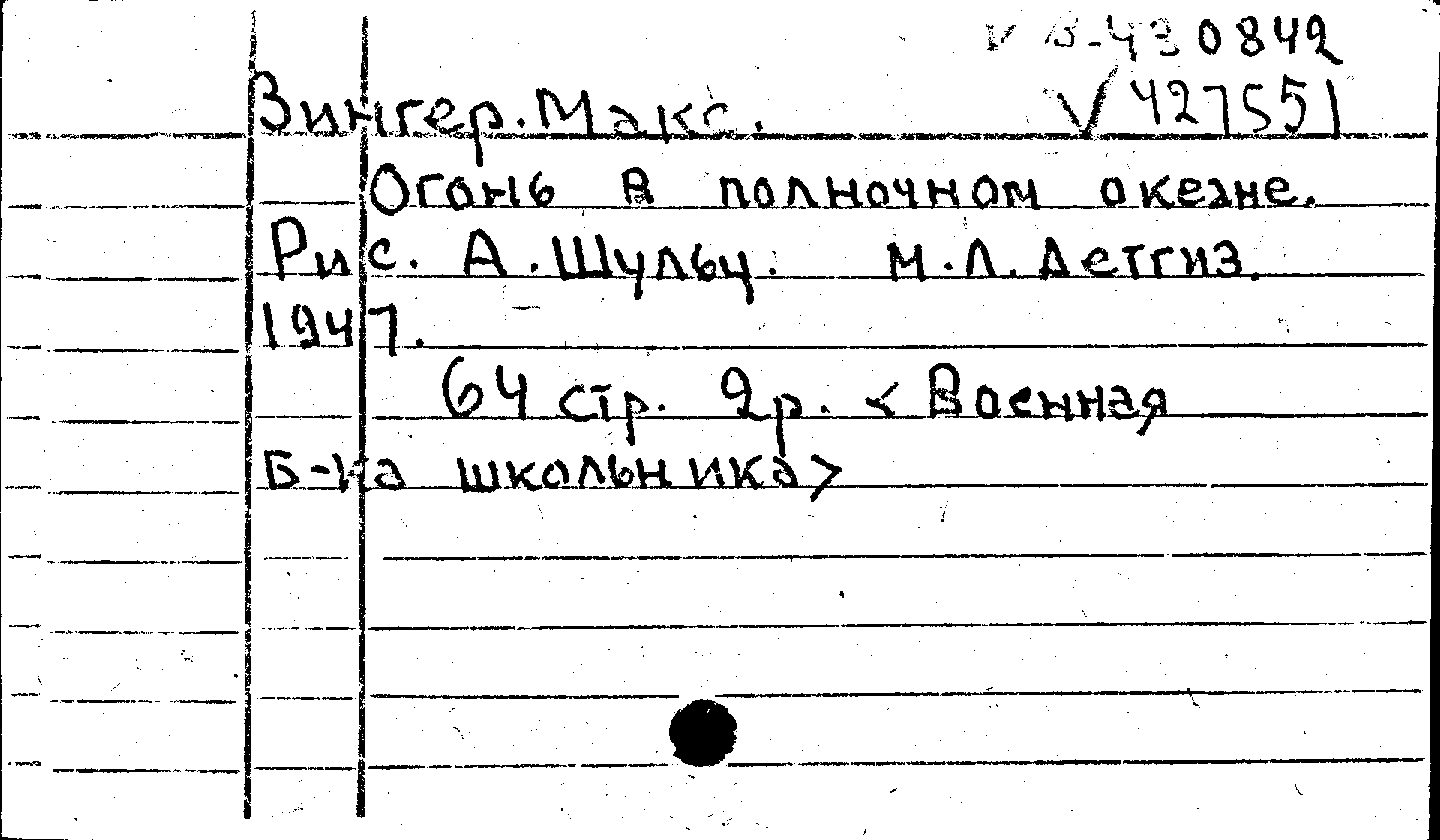 V B-430842
Зингер. Макс. V 427551
Огонь в полночном океане.
Рис. А. Шульц. М.Л. Детгиз.
1947.
64 стр. 2р. < Военная
Б-ка школьника >